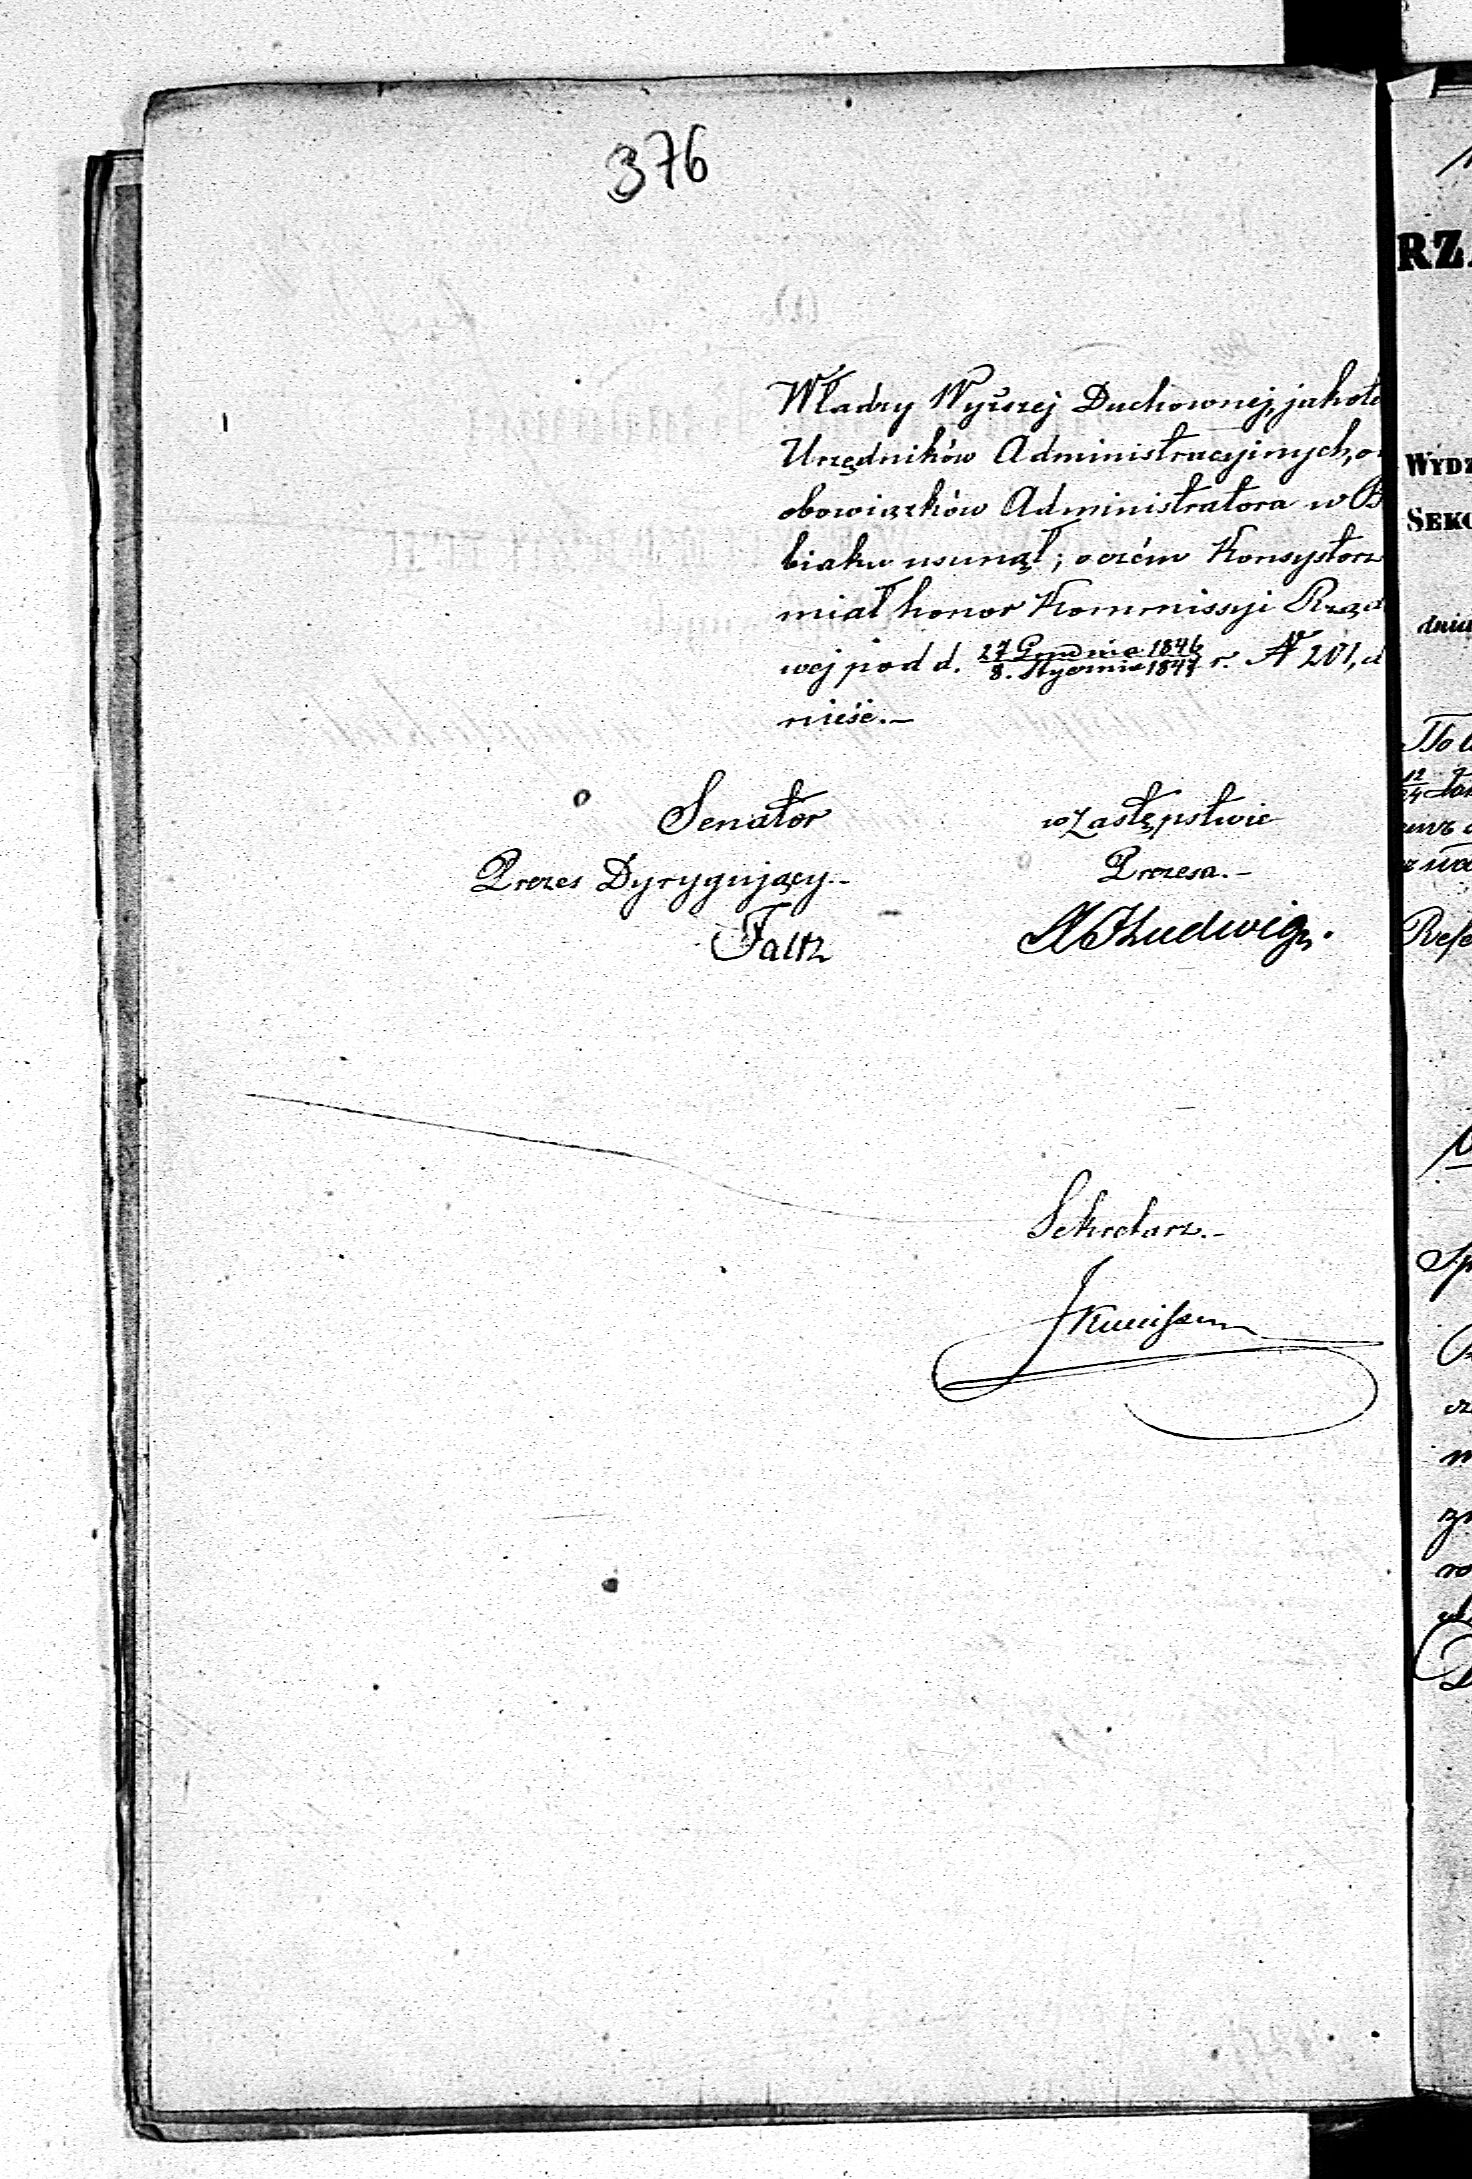 376
Władzy Wyższej Duchownej, jakoto
Urzędników Administracyjnych, o
obowiązków Administratora w B
biaku usunął; o czém Konsystorz
miał honor Kommissyi Rząd
wej pod d. 27 Grudnia 1846 / 8. Stycznia 1847 r. N 201, d
nieść.—
Senator
Prezes Dyrygujący.—
Faltz
w Zastępstwie
Prezesa.—
Ludwig.
Sekretarz.—
RZ
WYDZ
SEK
dnia
12/24